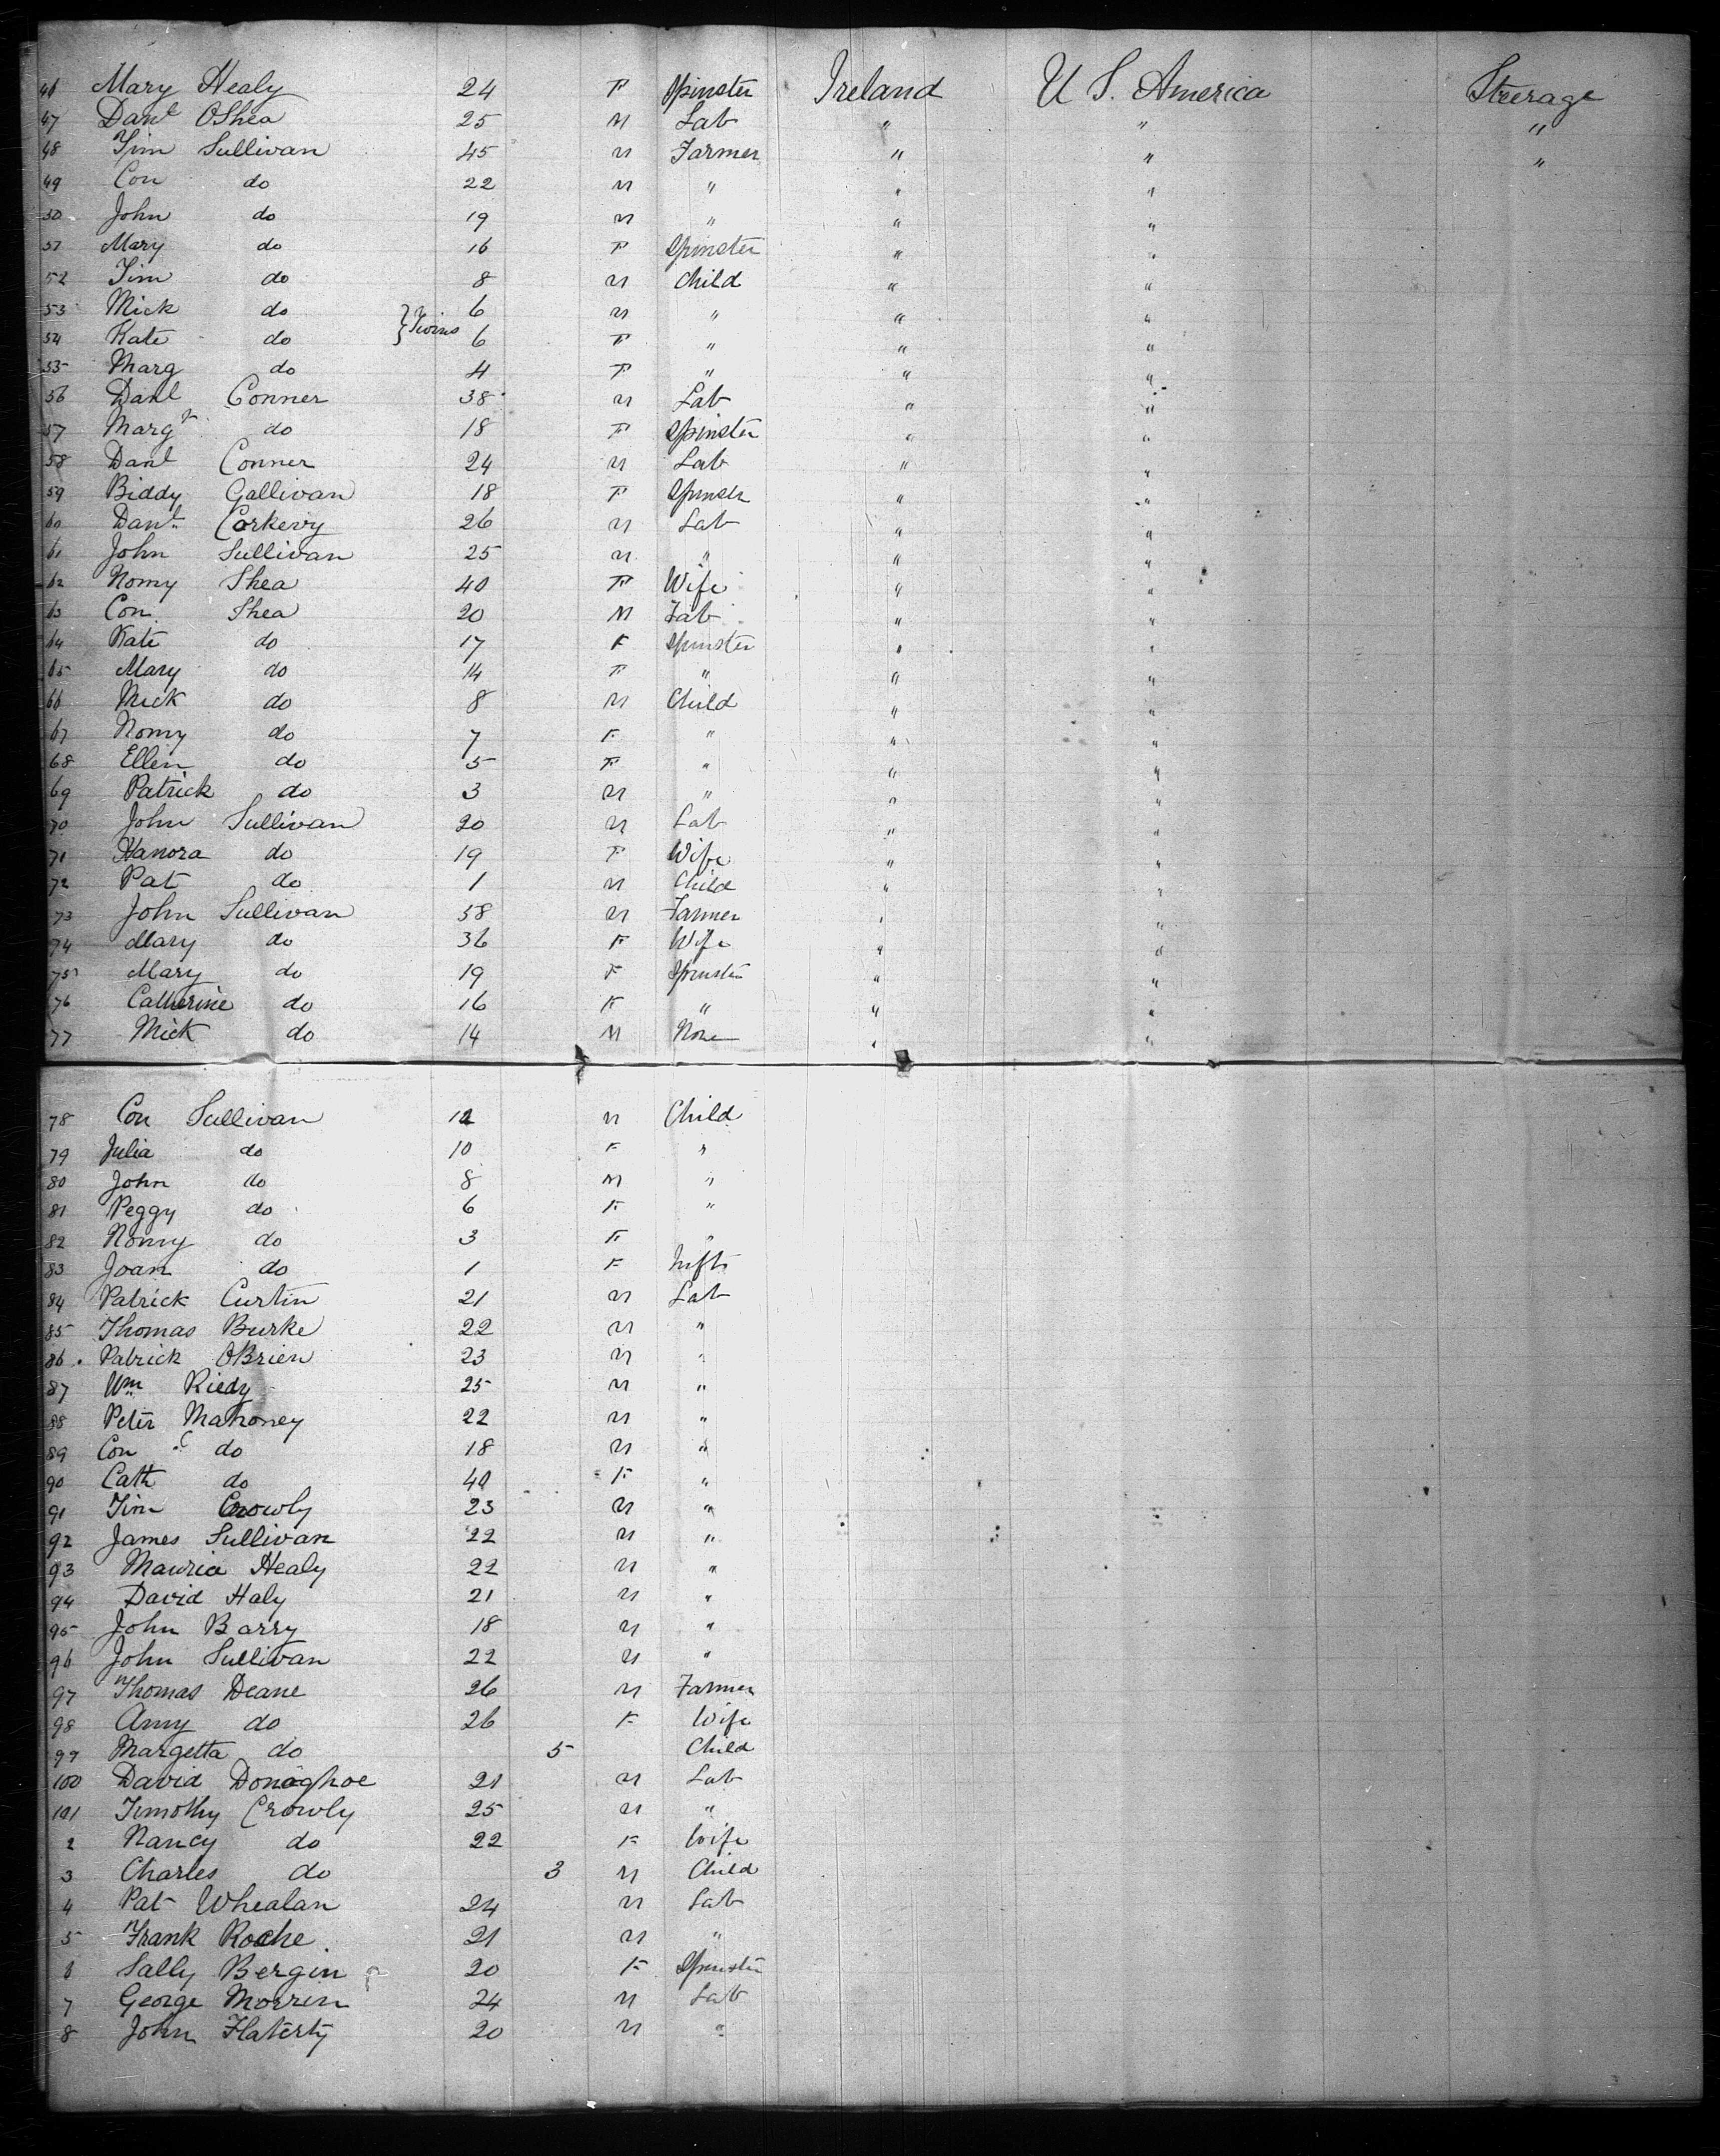 46 Mary Healy 24 F Spinster Ireland U S. America Steerage
47 Danl OShea 25 M Lab " " "
48 Tim Sullivan 45 M Farmer " " "
49 Con do 22 M " " "
50 John do 19 M " " "
51 Mary do 16 F Spinster " "
52 Tim do 8 M Child " "
53 Mick do } Twins 6 M " " "
54 Kate do 6 F " " "
55 Marg do 4 F " " "
56 Danl Conner 38 M Lab " "
57 Margt do 18 F Spinster " "
58 Danl Conner 24 M Lab " "
59 Biddy Gallivan 18 F Spinster " "
60 Danl Corkery 26 M Lab " "
61 John Sullivan 25 M " " "
62 Nomy Shea 40 F Wife " "
63 Con Shea 20 M Lab " "
64 Kate do 17 F Spinster " "
65 Mary do 14 F " " "
66 Mick do 8 M Child " "
67 Nomy do 7 F " " "
68 Ellen do 5 F " " "
69 Patrick do 3 M " " "
70 John Sullivan 20 M Lab " "
71 Hanora do 19 F Wife " "
72 Pat do 1 M Child " "
73 John Sullivan 58 M Farmer " "
74 Mary do 36 F Wife " "
75 Mary do 19 F Spinster " "
76 Catherine do 16 F " " "
77 Mick do 14 M None " "
78 Con Sullivan 12 M Child
79 Julia do 10 F "
80 John do 8 M "
81 Peggy do 6 F "
82 Nomy do 3 F "
83 Joan do 1 F Inft
84 Patrick Curtin 21 M Lab
85 Thomas Burke 22 M "
86 Patrick OBrien 23 M "
87 Wm Riedy 25 M "
88 Peter Mahoney 22 M "
89 Con do 18 M "
90 Cath do 40 F "
91 Tim Crowly 23 M "
92 James Sullivan 22 M "
93 Maurice Healy 22 M "
94 David Haly 21 M "
95 John Barry 18 M "
96 John Sullivan 22 M "
97 Thomas Deane 26 M Farmer
98 Amy do 26 F Wife
99 Margetta do 5 Child
100 David Donoghoe 21 M Lab
101 Timothy Crowly 25 M "
2 Nancy do 22 F Wife
3 Charles do 3 M Child
4 Pat Whealan 24 M Lab
5 Frank Roche 21 M "
6 Sally Bergin 20 F Spinster
7 George Morren 24 M Lab
8 John Flaterty 20 M "